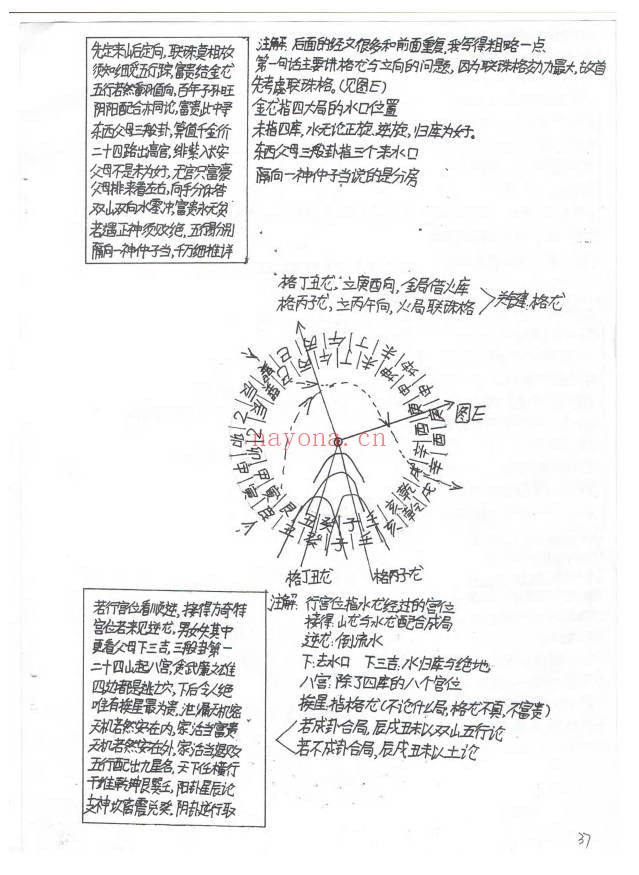 先定来山后定向，联珠真相妨
须知细觅五行踪，富贵结金龙
五行若然翻值向，百年子孙旺
阴阳配合亦同论，富贵此中寻
东西父母三般卦，算值千金价
二十四路出高官，绯紫入长安
父母不是未为好，无官只富豪
父母排来看左右，向首分休咎
双山双向水零冲，富贵永无贫
若遇正神须败绝，五行当分别
隔向一神仲子当，千万细推详
注解：后面的经文很多和前面重复，我写得粗略一点
第一句话主要讲格龙与立向的问题，因为联珠格动力最大，故首
先考虑联珠格。（见图E）
金龙指四大局的水口位置
未指四库，水无论正旋、逆旋，归库为好。
东西父母三般卦指三个来水口
隔向一神仲子当说的是分房
格丁丑龙，立庚酉向，金局借火库
格丙子龙，立丙午向，火局联珠格
关键：格龙
图E
nayona.cn
格丁丑龙
格丙子龙
若行宫位看顺逆，接得方奇特
宫位若来见逆龙，男女失其中
更看父母下三吉，三般卦第一
二十四山起八宫，贪武廉文雄
四边都是逃亡穴，下后令人绝
唯有挨星最为贵，泄漏天机秘
天机若然安在内，家活当富贵
天机若然安在外，家活当退败
五行配出九星名，天下任横行
干维乾艮巽壬，阳卦星辰论
支神坎震兑癸，阴卦逆行取
注解：行宫位指水龙经过的宫位
接得：山龙与水龙配合成局
逆龙：倒流水
下：去水口 下三吉：水归库与绝地
八宫：除了四库的八个宫位
挨星：指格龙（不论什么局，格龙不真，不富贵）
若成卦合局，辰戌丑未以双山五行论
若不成卦合局，辰戌丑未以土论
37